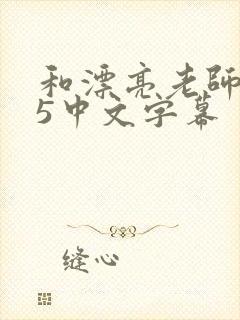 和漂亮老師
5中文字幕
缝心